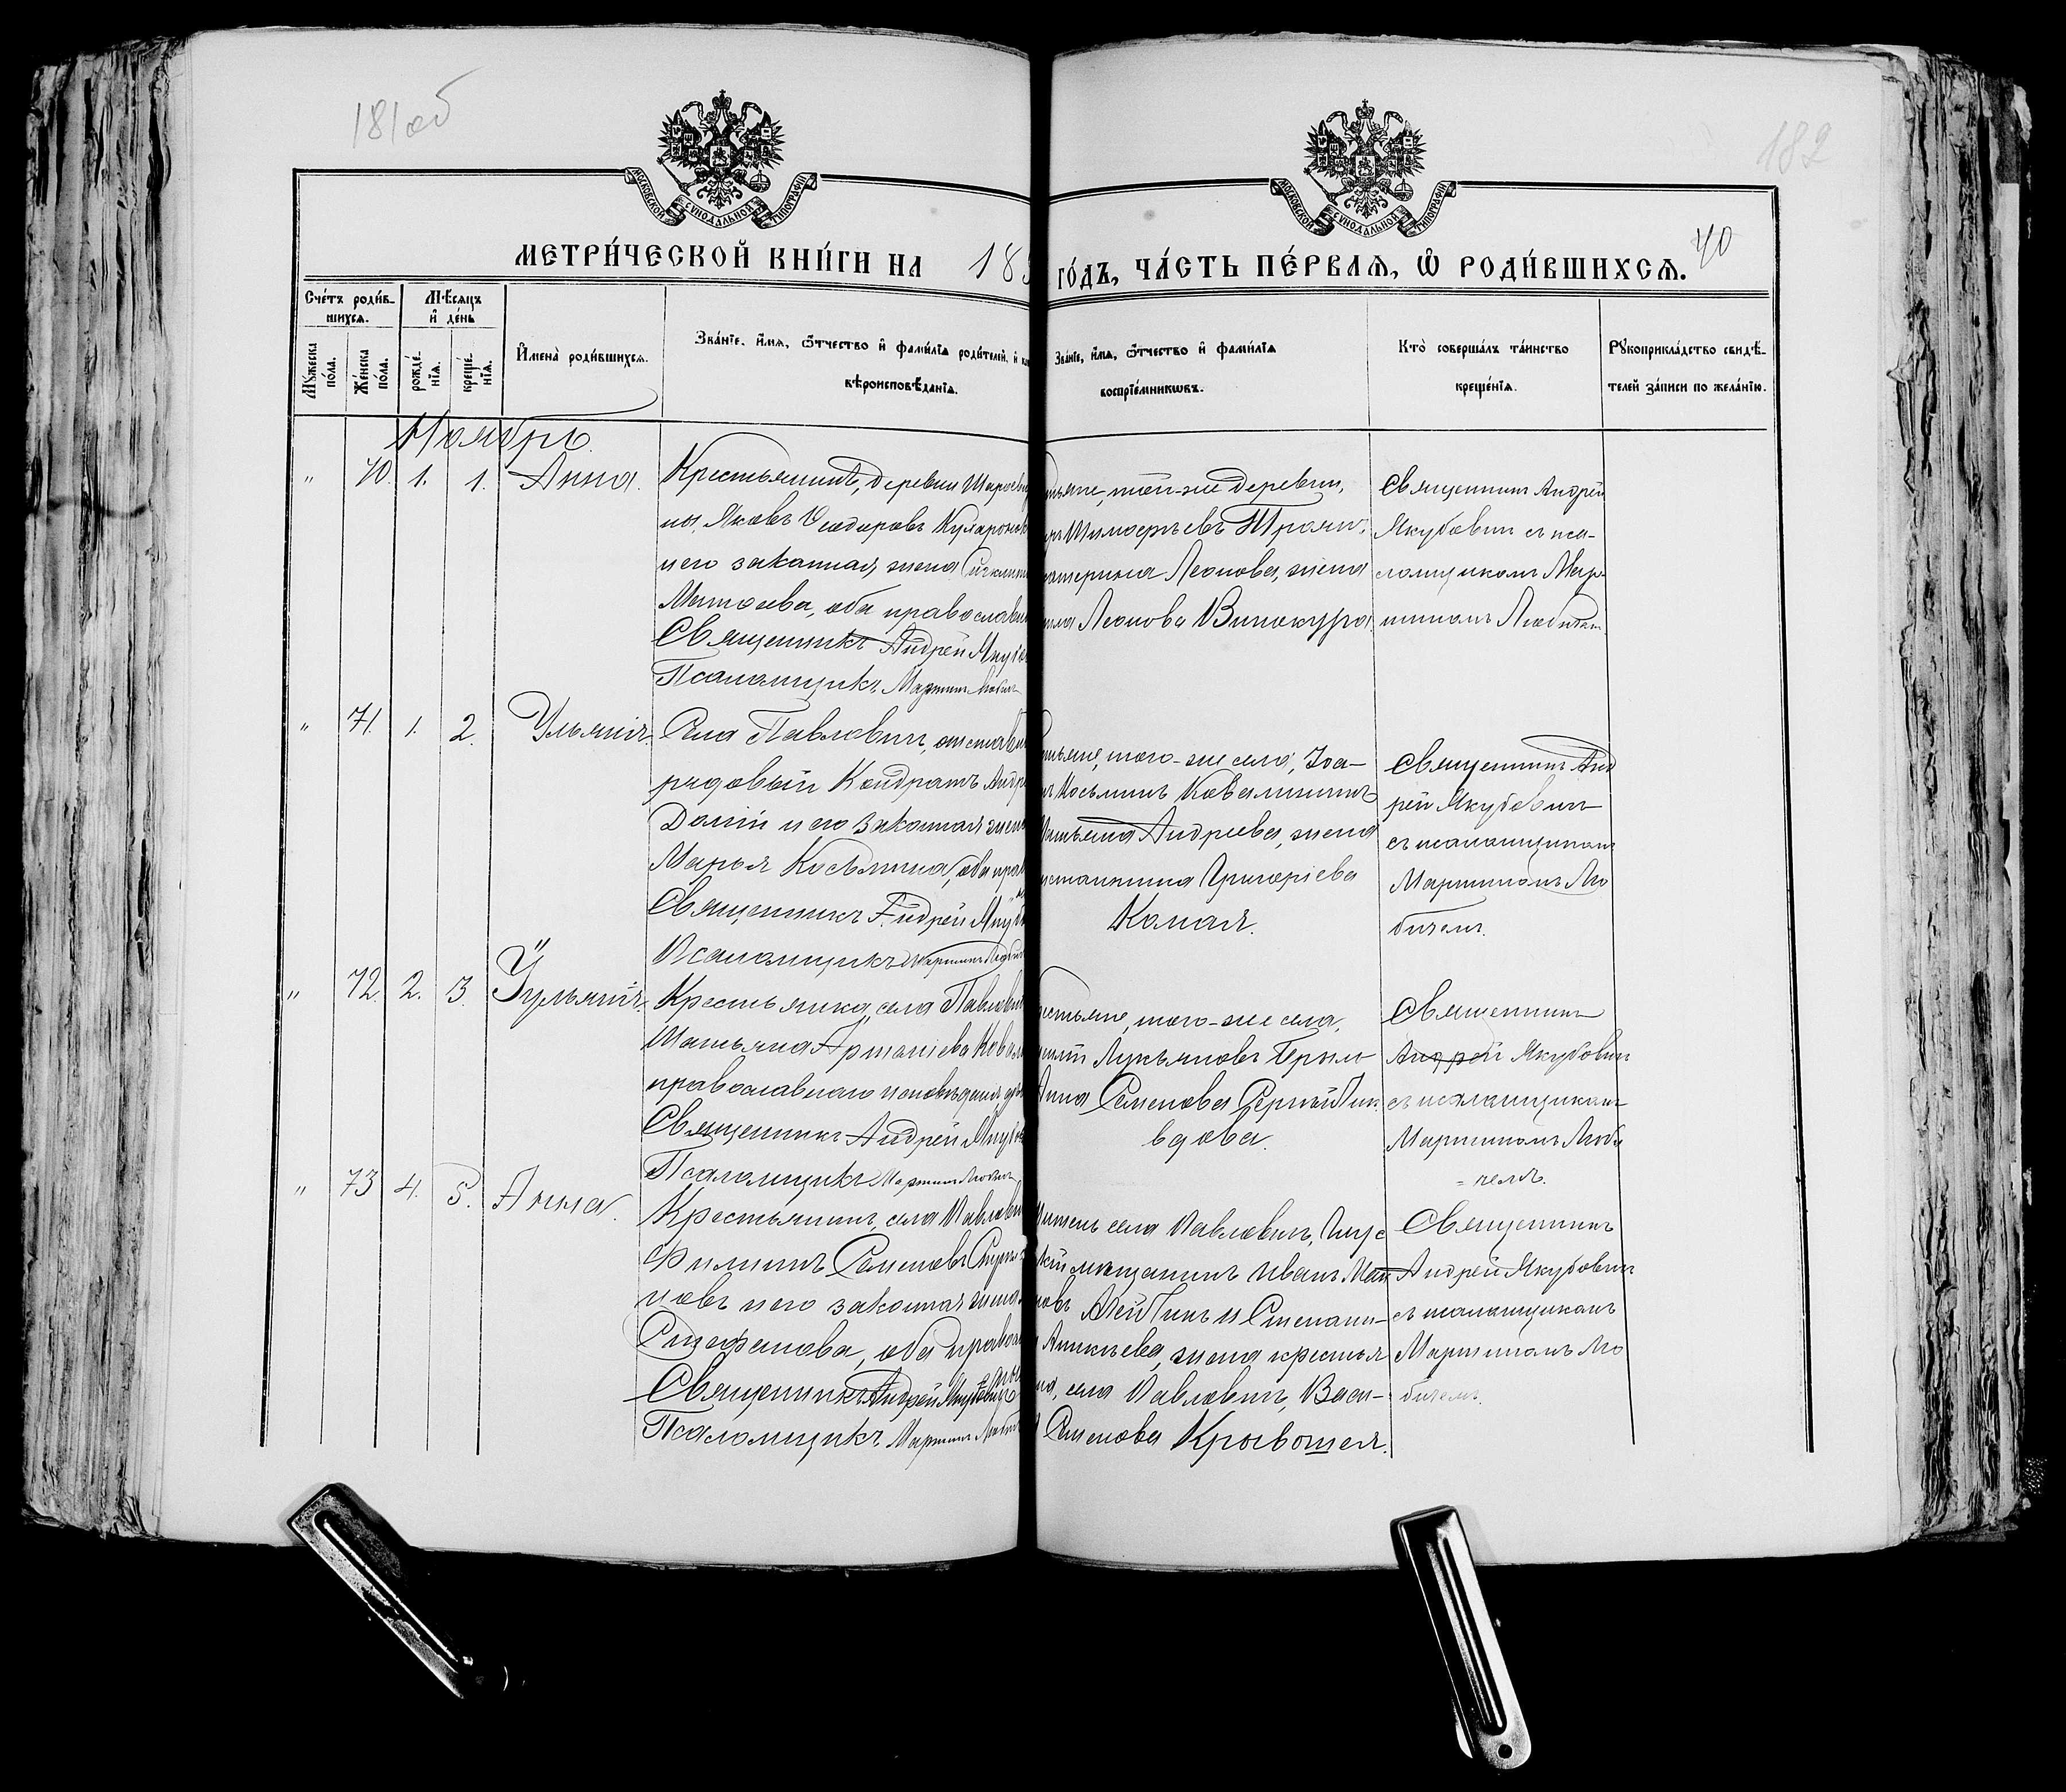 181об
182
МОСКОВСКОЙ СѴНОДАЛЬНОЙ ТИПОГРАФІИ
МОСКОВСКОЙ СѴНОДАЛЬНОЙ ТИПОГРАФІИ
МЕТРИ́ЧЕСКОЙ КНИ́ГИ НА 18
ГО́ДЪ, ЧА́СТЬ ПЕ́РВАѦ, Ѿ РОДИ́ВШИХСѦ.
40
Сче́тъ роди́в-
шихсѧ.
Мѣ́сѧцъ
и҆ де́нь
Мꙋ́жеска
по́ла.
Же́нска
по́ла.
рожде́-
нїѧ.
креще́-
нїѧ.
И҆мена̀ роди́вшихсѧ.
Зва́нїе, и҆́мѧ, ѻ҆́тчество и҆ фами́лїѧ роди́телей, и҆
вѣроисповѣ́данїѧ.
Зва́нїе, и҆́мѧ, ѻ҆́тчество и҆ фами́лїѧ
воспрїе́мникѡвъ.
Кто̀ соверша́лъ та́инство
креще́нїѧ.
Рꙋкоприкла́дство свидѣ́-
телей за́писи по жела́нїю.
Ноябрь.
" 70. 1. 1. Анна.
Крестьянинъ, деревни
ны, Яковъ Ѳеодоровъ
и его законная жена
Матѳеева, оба православн
Священникъ Андрей Якубо
Псаломщикъ Мартинъ Любич
тьяне, той-же деревни,
Тимоѳѣевъ Троян.
катерина Леонова, жена
Леонова Винокура
Священникъ Андрей
Якубовичъ съ пса-
ломщикомъ Мар-
тиномъ Любичем
" 71. 1. 2. Ульянія.
Села Павловичъ, отставн
рядовый Кондратъ Андре
и его законная жена
Марья Косьмина, оба прав
Священникъ Андрей Якубо
Псаломщикъ Мартинъ Любич
тьяне, того-же села, Іоа-
нъ Косьминъ Ковалишинъ
Татьяна Андреева, жена
нстантина Григоріева
Священникъ Анд
рей Якубовичъ
съ псаломщикомъ
Мартиномъ Лю
бичемъ.
" 72. 2. 3. Іульянія.
Крестьянка, села Павлович
Татьяна
православнаго исповѣданія
Священникъ Андрей Якубов
Псаломщикъ Мартинъ Любич
естьяне, того-же села,
Лукьяновъ
Анна Семенова
вдова.
Священникъ
Андрей Якубович
съ псаломщикомъ
Мартиномъ Люби
= чемъ.
" 73 4. 5. Анна.
Крестьянинъ, села Павлович
Филиппъ Семеновъ
новъ и его законная жена
Стефанова, оба правосл
Священникъ Андрей Якубовичъ
Псаломщикъ Мартинъ Любич
Учитель села Павловичъ,
мѣщанинъ Иванъ
новъ и Степани-
Аникіева, жена крестья
на, села Павловичъ, Васи-
Семенова Кривошея.
Священникъ
Андрей Якубович
съ псаломщикомъ
Мартиномъ Лю
бичемъ.